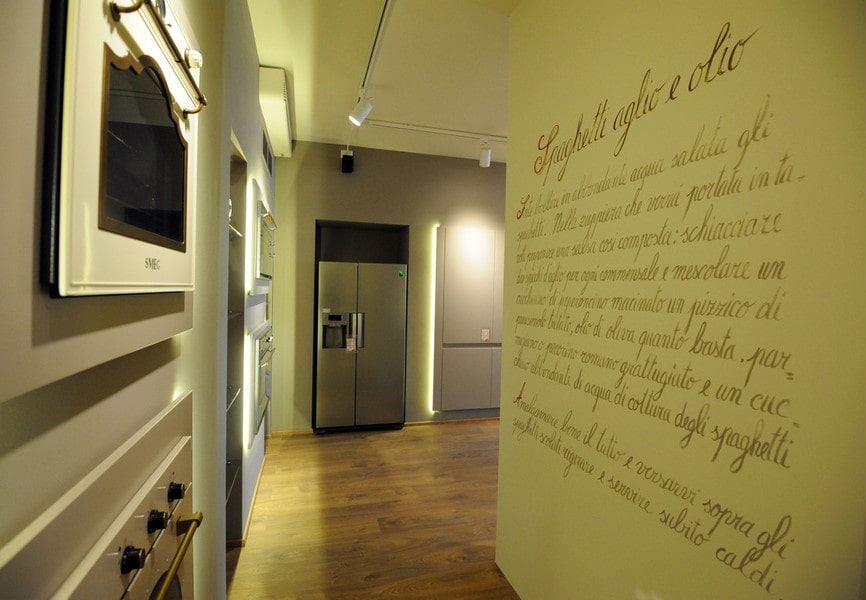 SMEG
Spaghetti aglio e olio
Far bollire in abbondante acqua salata gli
spaghetti. Nella zuppiera che vorrai portata in ta-
una salsa così composta: schiacciare
due spicchi d'aglio per ogni commensale e mescolare un
cucchiaio di peperoncino macinato un pizzico di
prezzemolo tritato, olio di oliva quanto basta. par=
o pecorino romano grattugiato e un cuc=
chiaio abbondante di acqua di cottura degli spaghetti
Amalgamare bene il tutto e versarvi sopra gli
spaghetti scolati rigirare e servire subito caldi.